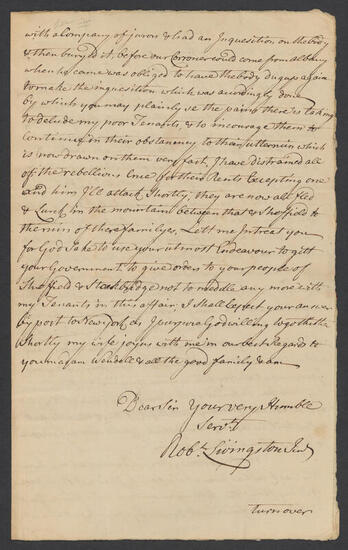 with a Company of jurors & had an Inquesition on the body
& then buryed it, before our Corroner could come from Albany
when he came was obliged to have the body dug up again
to make the inquisition which was acordingly done
by which you may plainly se the pains there is taking
to delude my poor Tenants, & to incourage them to
Continue in their obstanency to than utter ruin which
is now drawn on them very fast, I have distrained all
of the rebellious Crue for their Rents Excepting one
and him I'll attack Shortly, they are now all fled
& Lurk in the mountain between that & Sheffield to
the ruin of there familyes. Let me Intreat you
for Gods Sake to use your utmost Endeavour to gitt
your Government to give order to your people of
Sheffield & Stockbridge not to meddle any more with
my Tenants in this affair, I shall Expect your answer
by post to New York, as I purpose God willing to go thither
Shortly my wife joyns with me in our best Regards to
you madam Wendell & all the good family & am
Dear Sir Your very Humble
Servt
Robt Livingston Junr
turn over